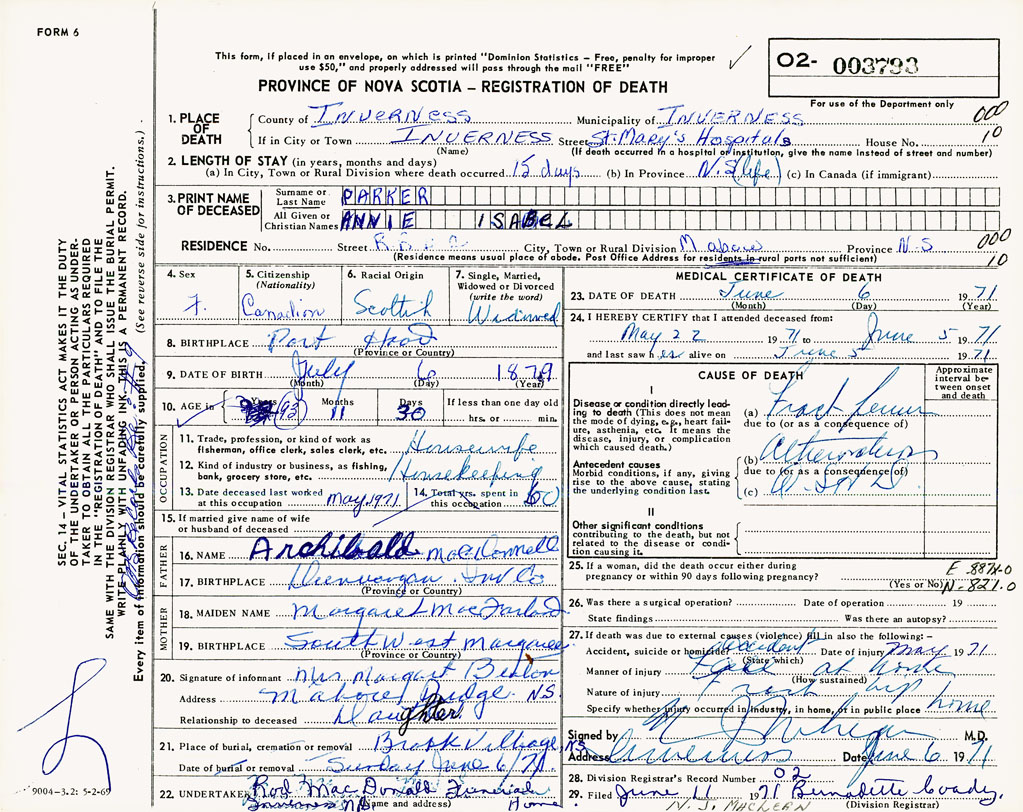 FORM 6
This form, if placed in an envelope, on which is printed "Dominion Statistics – Free, penalty for improper
use $50," and properly addressed will pass through the mail "FREE"
O2- 003793
PROVINCE OF NOVA SCOTIA – REGISTRATION OF DEATH
For use of the Department only
1. PLACE OF DEATH
County of INVERNESS Municipality of INVERNESS 000
If in City or Town INVERNESS Street St. Mary's Hospitals House No. 10
(Name) (If death occurred in a hospital or institution, give the name instead of street and number)
2. LENGTH OF STAY (in years, months and days)
(a) In City, Town or Rural Division where death occurred 15 days (b) In Province N.S (life) (c) In Canada (if immigrant)
3. PRINT NAME OF DECEASED
Surname or Last Name PARKER
All Given or Christian Names ANNIE ISABEL
RESIDENCE No. Street City, Town or Rural Division Mabou Province N.S 000
(Residence means usual place of abode. Post Office Address for residents in rural parts not sufficient) 10
4. Sex F.
5. Citizenship (Nationality) Canadian
6. Racial Origin Scottish
7. Single, Married, Widowed or Divorced (write the word) Widowed
8. BIRTHPLACE Port Hood
(Province or Country)
9. DATE OF BIRTH July 6 1879
(Month) (Day) (Year)
10. AGE in Years 93 Months 11 Days 30 If less than one day old
hrs. or min.
OCCUPATION
11. Trade, profession, or kind of work as
fisherman, office clerk, sales clerk, etc. Housewife
12. Kind of industry or business, as fishing,
bank, grocery store, etc. Housekeeping
13. Date deceased last worked
at this occupation May 1971
14. Total yrs. spent in
this occupation 60
15. If married give name of wife
or husband of deceased
FATHER
16. NAME Archibald MacDonnell
17. BIRTHPLACE Inv Co
(Province or Country)
MOTHER
18. MAIDEN NAME Margaret MacFarland
19. BIRTHPLACE South West Margaree
(Province or Country)
20. Signature of informant Mrs Margaret
Address Mabou Bridge N.S.
Relationship to deceased Daughter
21. Place of burial, cremation or removal Brook Village, NS
Date of burial or removal Sunday June 6/71
22. UNDERTAKER Rod MacDonald Funeral Home
(Name and address)
MEDICAL CERTIFICATE OF DEATH
23. DATE OF DEATH June 6 1971
(Month) (Day) (Year)
24. I HEREBY CERTIFY that I attended deceased from:
May 22 1971 to June 5 1971
and last saw her alive on June 5 1971
CAUSE OF DEATH
Approximate interval between onset and death
I
Disease or condition directly leading
to death (This does not mean
the mode of dying, e.g., heart failure,
asthenia, etc. It means the
disease, injury, or complication
which caused death.)
(a) Fract Femur
due to (or as a consequence of)
Antecedent causes
Morbid conditions, if any, giving
rise to the above cause, stating
the underlying condition last.
(b)
due to (or as a consequence of)
(c)
II
Other significant conditions
contributing to the death, but not
related to the disease or condition
causing it.
25. If a woman, did the death occur either during
pregnancy or within 90 days following pregnancy?
(Yes or No)
E-887X-0
N-821.0
26. Was there a surgical operation? Date of operation 19
State findings Was there an autopsy?
27. If death was due to external causes (violence) fill in also the following: –
Accident, suicide or homicide accident Date of injury May 1971
(State which)
Manner of injury Fall at home
(How sustained)
Nature of injury Fract hip
Specify whether injury occurred in industry, in home, or in public place home
Signed by M.D.
Address Inverness Date June 6 1971
28. Division Registrar's Record Number 02
29. Filed June 11 1971 Bernadette Coady
N. J. MACLEAN (Division Registrar)
SEC. 14 – VITAL STATISTICS ACT MAKES IT THE DUTY
OF THE UNDERTAKER OR PERSON ACTING AS UNDERTAKER
TO OBTAIN ALL THE PARTICULARS REQUIRED
IN THE "REGISTRATION OF DEATH" AND TO FILE THE
SAME WITH THE DIVISION REGISTRAR WHO SHALL ISSUE THE BURIAL PERMIT.
WRITE PLAINLY WITH UNFADING INK. THIS IS A PERMANENT RECORD.
Every item of information should be carefully supplied. (See reverse side for instructions.)
9004–3.2: 5-2-69